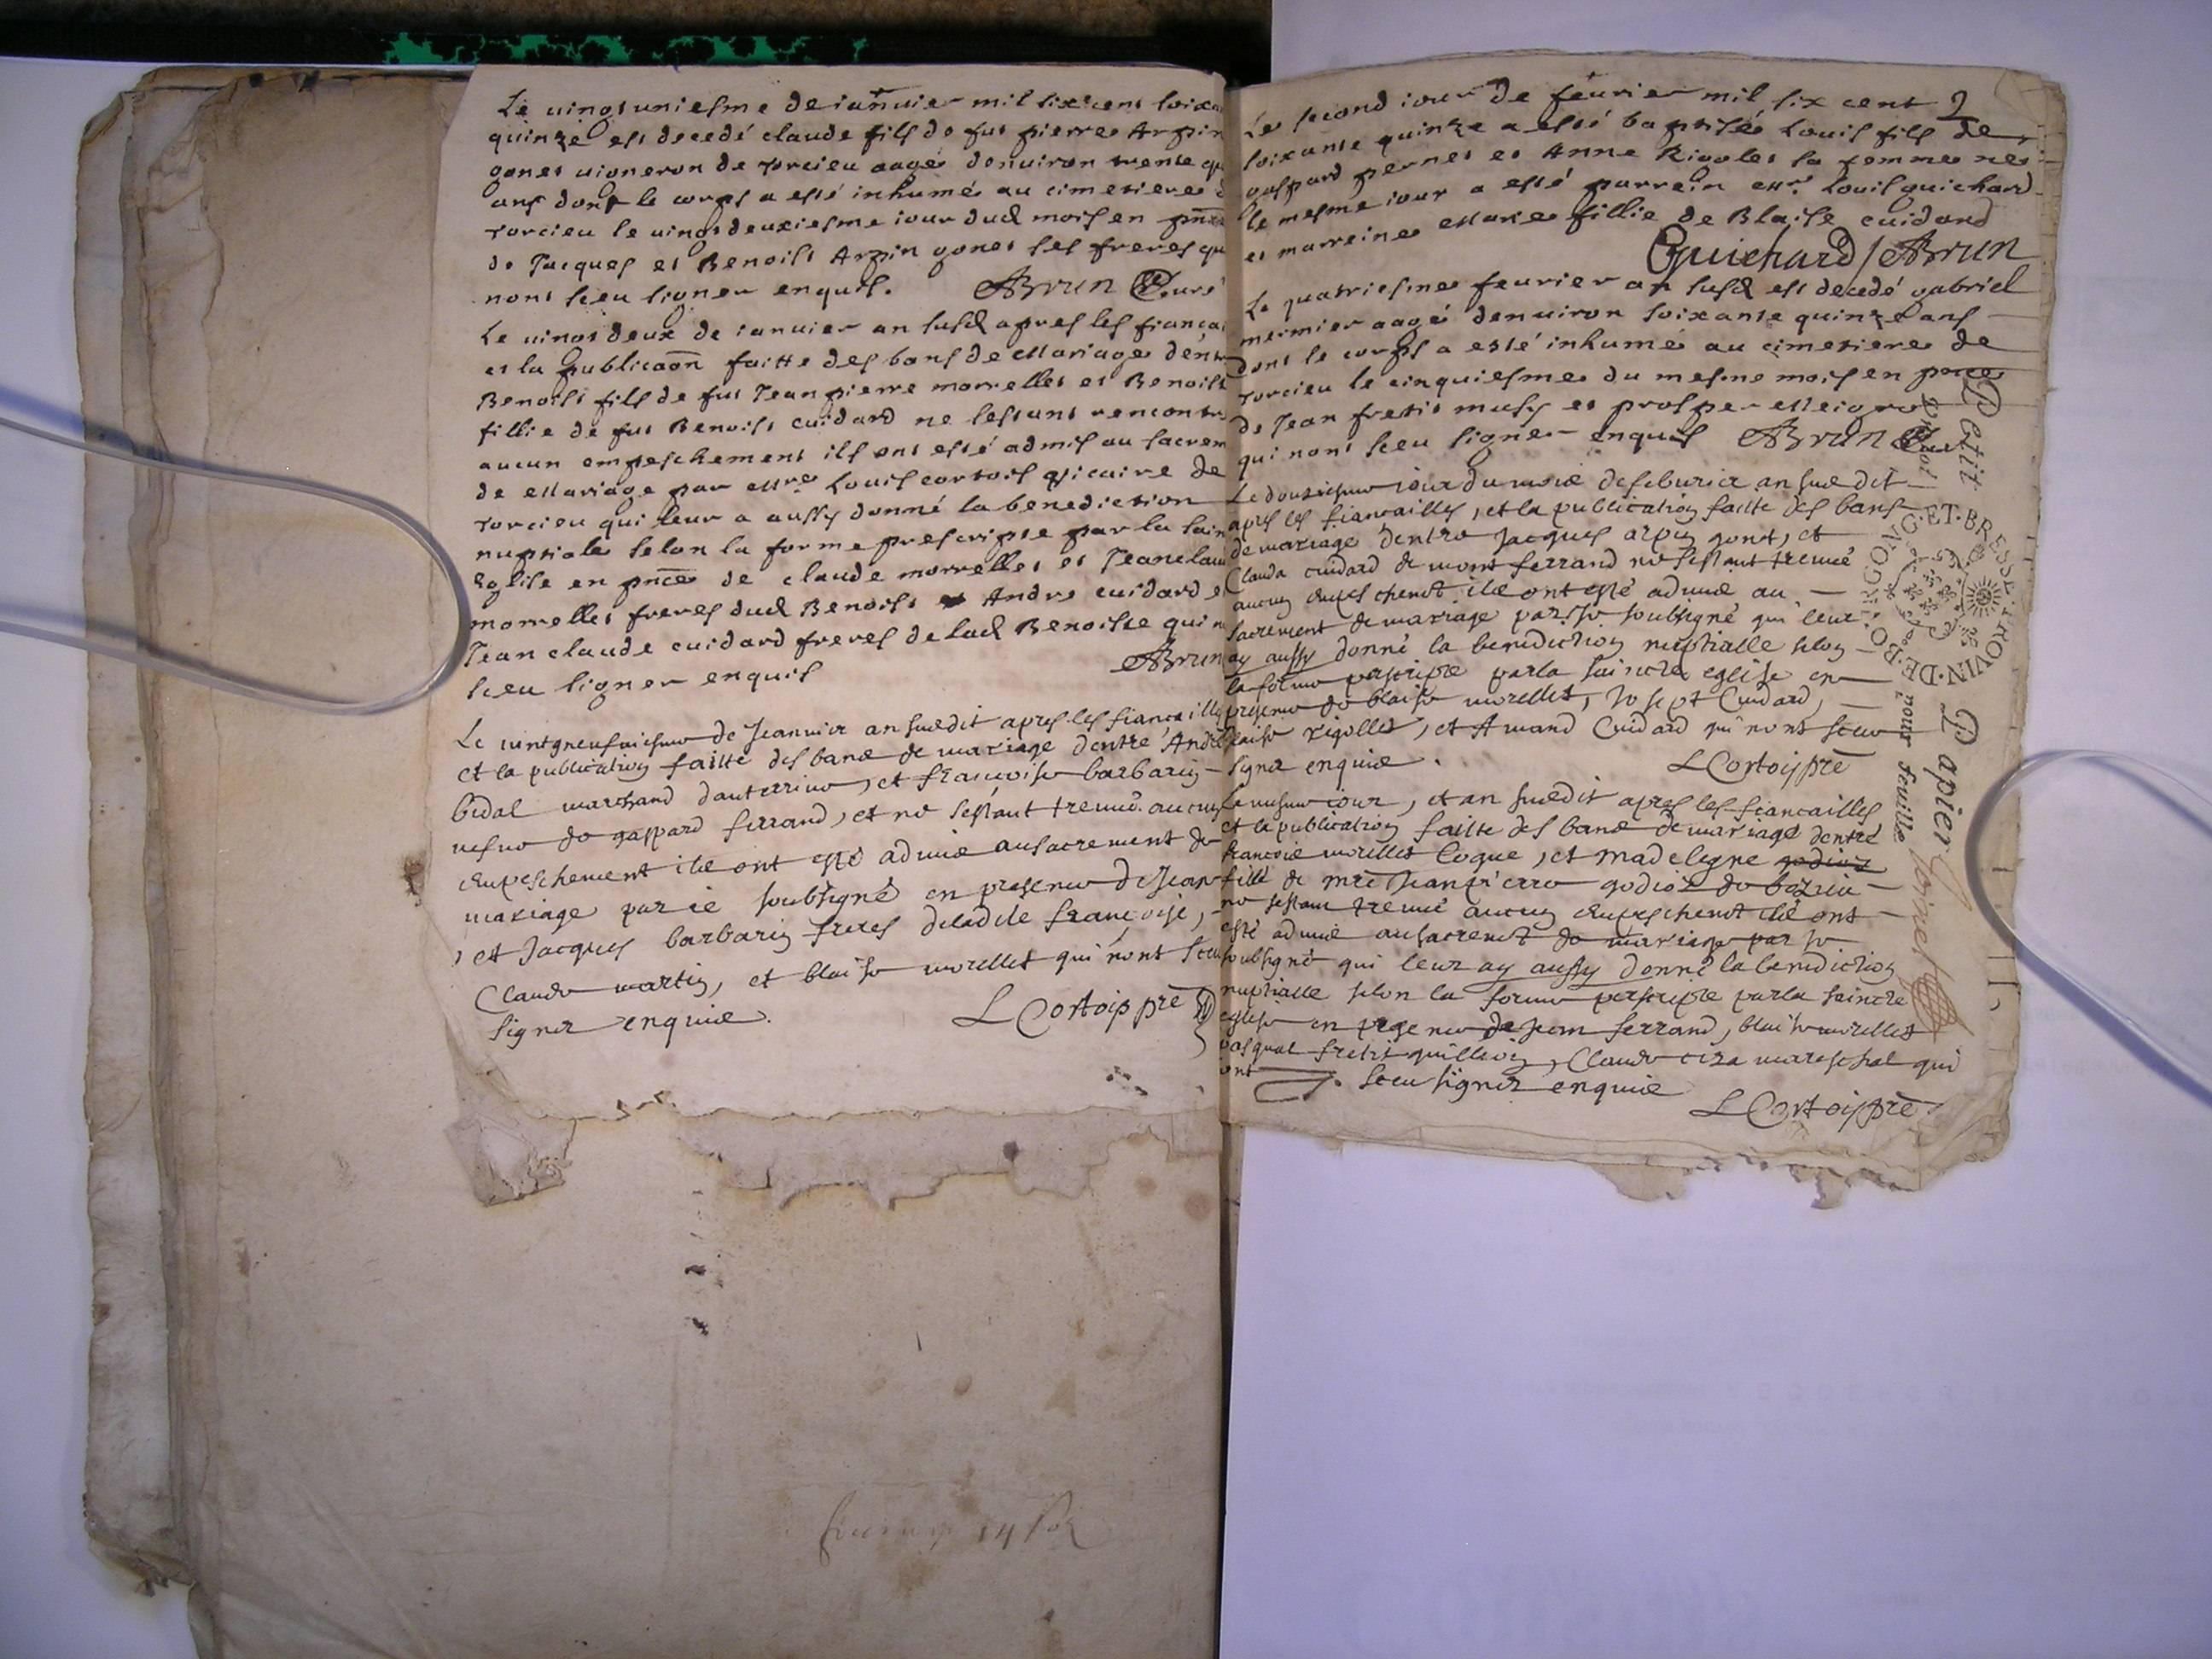 Le vingt uniesme de ianvier mil six cens soixa
quinze est decedé claude fils de fut pierre Arpin
gonet vigneron de torcieu aagé denviron trente qu
ans dont le corps a esté inhumé au cimetiere
torcieu le vingt deuxiesme iour dud mois en pnce
de Jacques et Benoist Arpin gonet ses freres qu
nont sceu signer enquis. ABrun Curé
Le vingt deux de ianvier an susd apres les fiançai
et la publicaon faitte des bans de Mariage dentr
Benoist fils de fut Jean pierre morrellet et Benoist
fillie de fut Benoist cuidard ne sestant rencontr
aucun empeschement ils ont esté admis au sacrem
de Mariage par Mre Louis cortois vicaire de
torcieu qui leur a aussy donné la benediction
nuptiale selon la forme prescripte par la sain
Eglise en pnce de claude morrellet et Jeanclau
morrellet freres dud Benoist Andre cuidard e
Jean claude cuidard freres de lad Benoiste qui n
sceu signer enquis ABrun
Le vintgneufuiesme de Jeanvier an susdit apres les fiancailles
et la publication faitte des bans de mariage dentre André
bidal marchand et françoise barbarin
vesve de gaspard ferrand, et ne sestant treuvé aucung
empeschement ils ont esté admis au sacrement de
mariage par ie soubsigné en presence de Jean
et Jacques barbarin freres deladite françoise,
Claude martin, et blaise morellet qui nont sceu
signer enquis. LCortois pre
2
Le second iour de fevrier mil six cent
soixante quinze a esté baptisé Louis fils de
gaspard pernet et Anne Rigolet sa femme né
le mesme iour a esté parrein Mr Louis guichard
et marreine Marie fillie de Blaise cuidard
Guichard / ABrun
Le quatriesme fevrier an susd est decedé gabriel
mermier aagé denviron soixante quinze ans
dont le corps a esté inhumé au cimetiere de
torcieu le cinquiesme du mesme mois en pnce
de Jean fretit musy et prosper
qui nont sceu signer enquis ABrun Curé
Le douziesme iour du mois de feburier an susdit
apres les fiancailles, et la publication faitte des bans
de mariage dentre Jacques arpin gonet, et
Clauda cuidard de mont ferrand ne sestant treuvé
aucun empeschemt ils ont esté admis au
sacrement de mariage par Je soubsigné qui leur
ay aussy donné la benediction nuptialle selon
la forme perscripte par la saincte eglise en
presence de blaise morellet, Josept Cuidard,
blaise rigollet, et Amand Cuidard qui nont sceu
signer enquis. LCortois pre
Le mesme iour, et an susdit apres les fiancailles
et la publication faitte des bans de mariage dentre
francois morellet Coque, et madelegne
fille de mre Jeanpierre godior de
ne sestant treuvé aucun empeschemt ils ont
esté admis au sacremt de mariage par Je
soubsigné qui leur ay aussy donné la benediction
nuptialle selon la forme perscripte par la saincte
eglise en presence de Jean ferrand, blaise morellet
pasqual fretit guillion, Claude mareschal qui
ont sceu signer enquis
LCortois pre
Petit Papier
pour feuille
PROVIN·DE·BOURGONG·ET·BRESSE